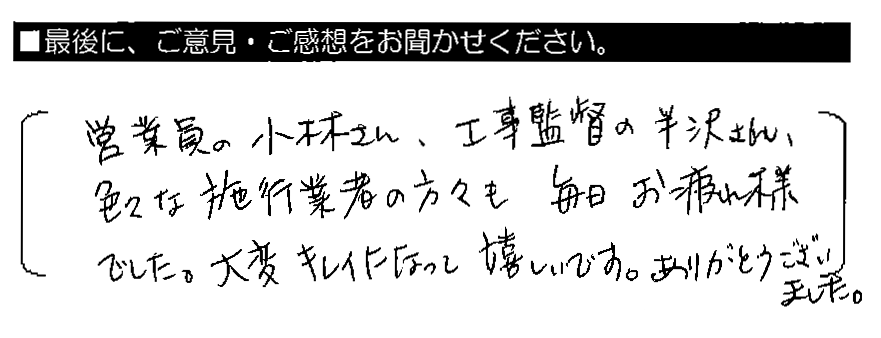 ■最後に、ご意見・ご感想をお聞かせください。
営業員の小林さん、工事監督の半沢さん、
色々な施行業者の方々も毎日お疲れ様
でした。大変キレイになって嬉しいです。ありがとうござい
ました。